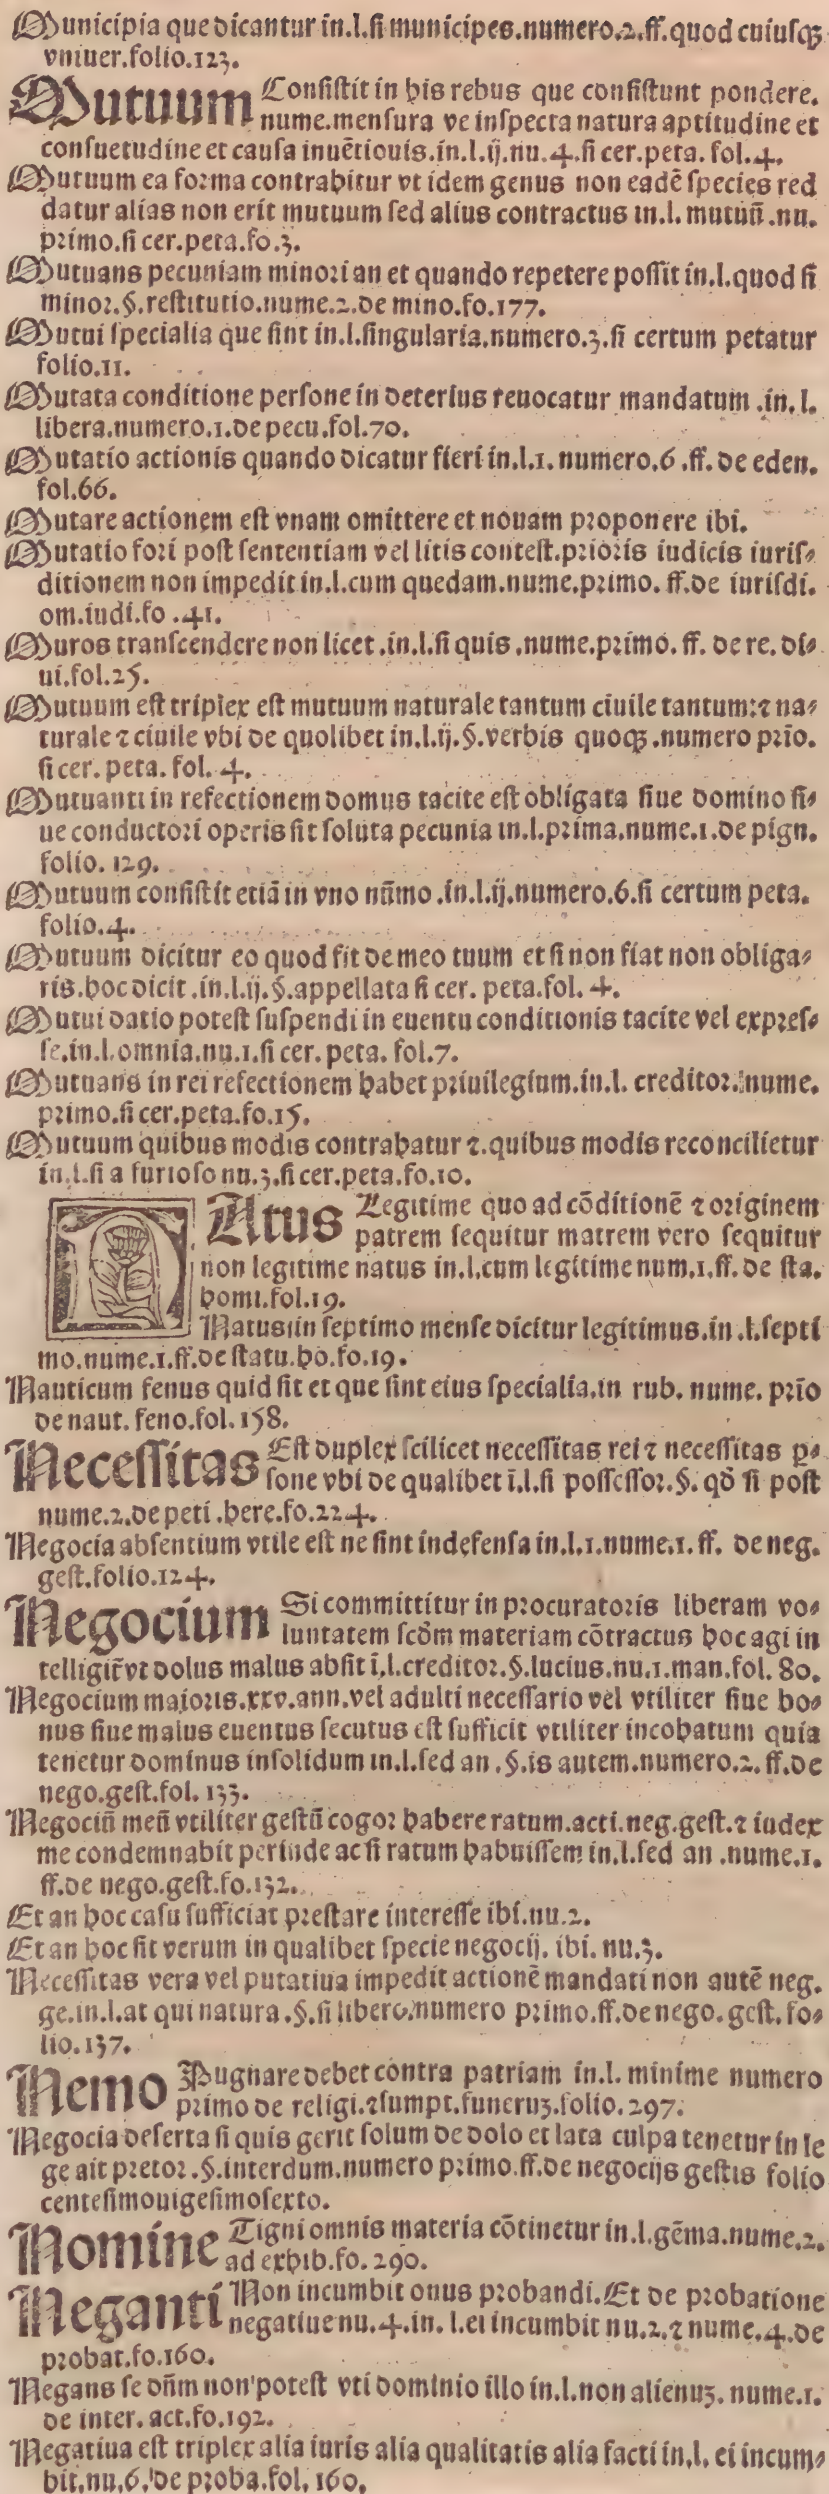 Municipia que dicantur in.l.si municipes.numero.2.ff.quod cuiusqꝫ
vniuer.folio.123.
Mutuum Consistit in his rebus que consistunt pondere.
nume.mensura ve inspecta natura aptitudine et
consuetudine et causa inuētiouis.in.l.ij.nu.4.si cer.peta.fol.4.
Mutuum ea forma contrahitur vt idem genus non eadē species red
datur alias non erit mutuum sed alius contractus in.l.mutuū.nu.
primo.si cer.peta.fo.3.
Mutuans pecuniam minori an et quando repetere possit in.l.quod si
minor.§.restitutio.nume.2.de mino.fo.177.
Mutui specialia que sint in.l.singularia.numero.3.si certum petatur
folio.11.
Mutata conditione persone in deterius reuocatur mandatum.in.l.
libera.numero.1.de pecu.fol.70.
Mutatio actionis quando dicatur fieri in.l.1.numero.6.ff.de eden.
fol.66.
Mutare actionem est vnam omittere et nouam proponere ibi.
Mutatio fori post sententiam vel litis contest.prioris iudicis iuris⸗
ditionem non impedit in.l.cum quedam.nume.primo.ff.de iurisdi.
om.iudi.fo.41.
Muros transcendere non licet.in.l.si quis.nume.primo.ff.de re.di⸗
ui.fol.25.
Mutuum est triplex est mutuum naturale tantum ciuile tantum:⁊ na⸗
turale ⁊ ciuile vbi de quolibet in.l.ij.§.verbis quoqꝫ.numero prīo.
si cer.peta.fol.4.
Mutuanti in refectionem domus tacite est obligata siue domino si⸗
ue conductori operis sit soluta pecunia in.l.prima.nume.1.de pign.
folio.129.
Mutuum consistit etiā in vno nūmo.in.l.ij.numero.6.si certum peta.
folio.4.
Mutuum dicitur eo quod fit de meo tuum et si non fiat non obliga⸗
ris.hoc dicit.in.l.ij.§.appellata si cer.peta.fol.4.
Mutui datio potest suspendi in euentu conditionis tacite vel expres⸗
se.in.l.omnia.nu.1.si cer.peta.fol.7.
Mutuans in rei refectionem habet priuilegium.in.l.creditor.nume.
primo.si cer.peta.fo.15.
Mutuum quibus modis contrahatur ⁊.quibus modis reconcilietur
in.l.si a furioso nu.3.si cer.peta.fo.10.
NAtus Legitime quo ad cōditionē ⁊ originem
patrem sequitur matrem vero sequitur
non legitime natus in.l.cum legitime num.1.ff.de sta.
homi.fol.19.
Natus in septimo mense dicitur legitimus.in.l.septi
mo.nume.1.ff.de statu.ho.fo.19.
Nauticum fenus quid sit et que sint eius specialia.in rub.nume.prīo
de naut.feno.fol.158.
Necessitas Est duplex scilicet necessitas rei ⁊ necessitas ꝑ⸗
sone vbi de qualibet ī.l.si possessor.§.qđ si post
nume.2.de peti.here.fo.224.
Negocia absentium vtile est ne sint indefensa in.l.1.nume.1.ff.de neg.
gest.folio.124.
Negocium Si committitur in procuratoris liberam vo⸗
luntatem scđm materiam cōtractus hoc agi in
telligit̄ vt dolus malus absit ī.l.creditor.§.lucius.nu.1.man.fol.80.
Negocium maioris.xxv.ann.vel adulti necessario vel vtiliter siue bo⸗
nus siue malus euentus secutus est sufficit vtiliter incohatum quia
tenetur dominus insolidum in.l.sed an.§.is autem.numero.2.ff.de
nego.gest.fol.133.
Negociū meū vtiliter gestū cogor habere ratum.acti.neg.gest.⁊ iudex
me condemnabit perinde ac si ratum habuissem in.l.sed an.nume.1.
ff.de nego.gest.fo.132.
Et an hoc casu sufficiat prestare interesse ibi.nu.2.
Et an hoc sit verum in qualibet specie negocij.ibi.nu.3.
Necessitas vera vel putatiua impedit actionē mandati non autē neg.
ge.in.l.at qui natura.§.si libero.numero primo.ff.de nego.gest.fo⸗
lio.137.
Nemo Pugnare debet contra patriam in.l.minime numero
primo de religi.⁊sumpt.funeruꝫ.folio.297.
Negocia deserta si quis gerit solum de dolo et lata culpa tenetur in le
ge ait pretor.§.interdum.numero primo.ff.de negocijs gestis folio
centesimouigesimosexto.
Nomine Tigni omnis materia cōtinetur in.l.gēma.nume.2.
ad exhib.fo.290.
Neganti Non incumbit onus probandi.Et de probatione
negatiue nu.4.in.l.ei incumbit nu.2.⁊ nume.4.de
probat.fo.160.
Negans se dn̄m non potest vti dominio illo in.l.non alienuꝫ.nume.1.
de inter.act.fo.192.
Negatiua est triplex alia iuris alia qualitatis alia facti in.l.ei incum⸗
bit.nu.6.de proba.fol.160.